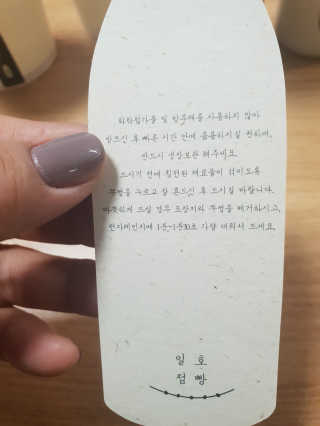 화학첨가물 및 방부제를 사용하지 않아
받으신 후 빠른 시간 안에 음용하시길 권하며,
반드시 냉장보관 해주세요.
드시기 전에 침전된 재료들이 섞이도록
뚜껑을 누르고 잘 흔드신 후 드시길 바랍니다.
따뜻하게 드실 경우 포장지와 뚜껑을 제거하시고,
전자레인지에 1분~1분30초 가량 데워서 드세요.
일호
점빵